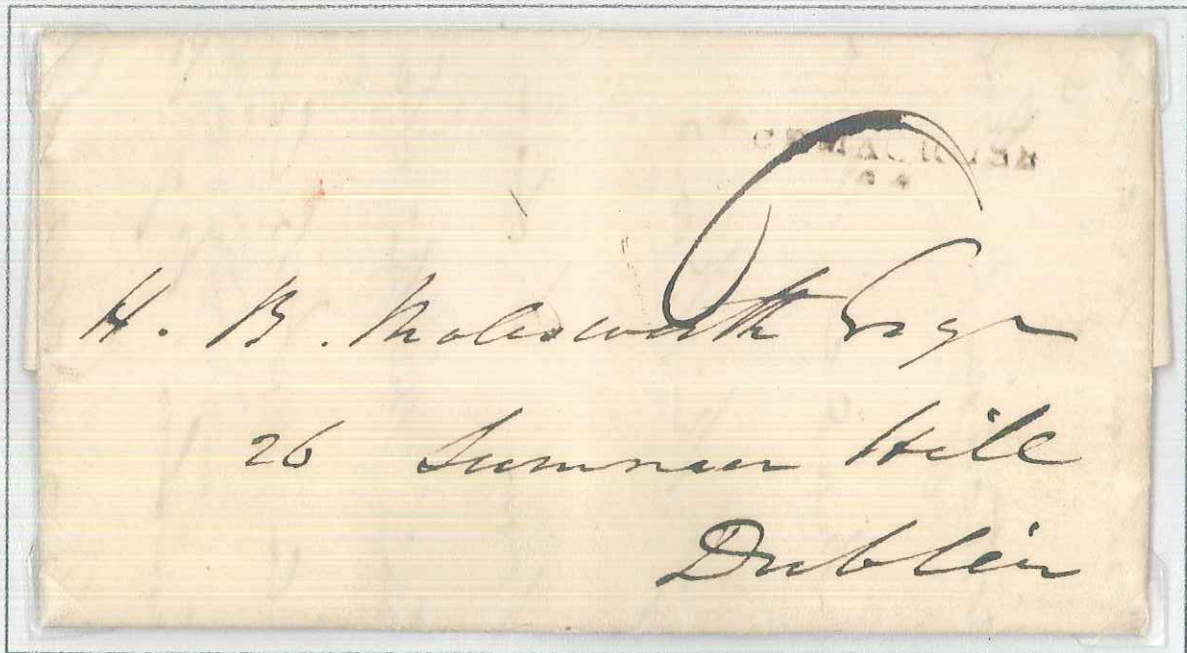 H. B. Molesworth Esqr
26 Summer Hill
Dublin